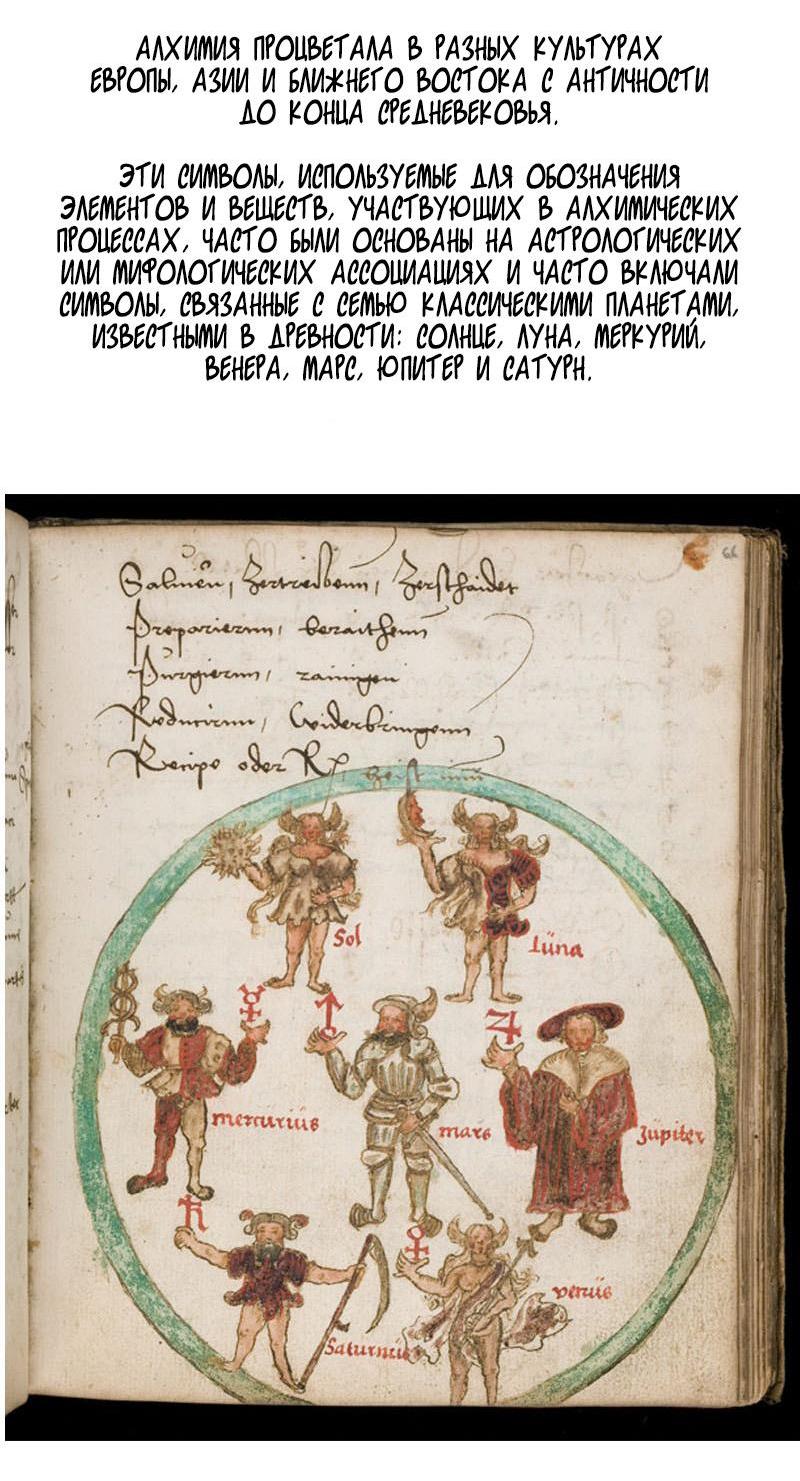 АЛХИМИЯ ПРОЦВЕТАЛА В РАЗНЫХ КУЛЬТУРАХ
ЕВРОПЫ, АЗИИ И БЛИЖНЕГО ВОСТОКА С АНТИЧНОСТИ
ДО КОНЦА СРЕДНЕВЕКОВЬЯ.
ЭТИ СИМВОЛЫ, ИСПОЛЬЗУЕМЫЕ ДЛЯ ОБОЗНАЧЕНИЯ
ЭЛЕМЕНТОВ И ВЕЩЕСТВ, УЧАСТВУЮЩИХ В АЛХИМИЧЕСКИХ
ПРОЦЕССАХ, ЧАСТО БЫЛИ ОСНОВАНЫ НА АСТРОЛОГИЧЕСКИХ
ИЛИ МИФОЛОГИЧЕСКИХ АССОЦИАЦИЯХ И ЧАСТО ВКЛЮЧАЛИ
СИМВОЛЫ, СВЯЗАННЫЕ С СЕМЬЮ КЛАССИЧЕСКИМИ ПЛАНЕТАМИ,
ИЗВЕСТНЫМИ В ДРЕВНОСТИ: СОЛНЦЕ, ЛУНА, МЕРКУРИЙ,
ВЕНЕРА, МАРС, ЮПИТЕР И САТУРН.
66
Preparierenn, beraithenn
Purgierenn, rainigen
Reducirnn, Widerbringenn
Recipe oder R
Sol
Lüna
☿ ♂ ♃
mercuriüs
mars
Jupiter
♄ ♀
venüs
Saturnüs